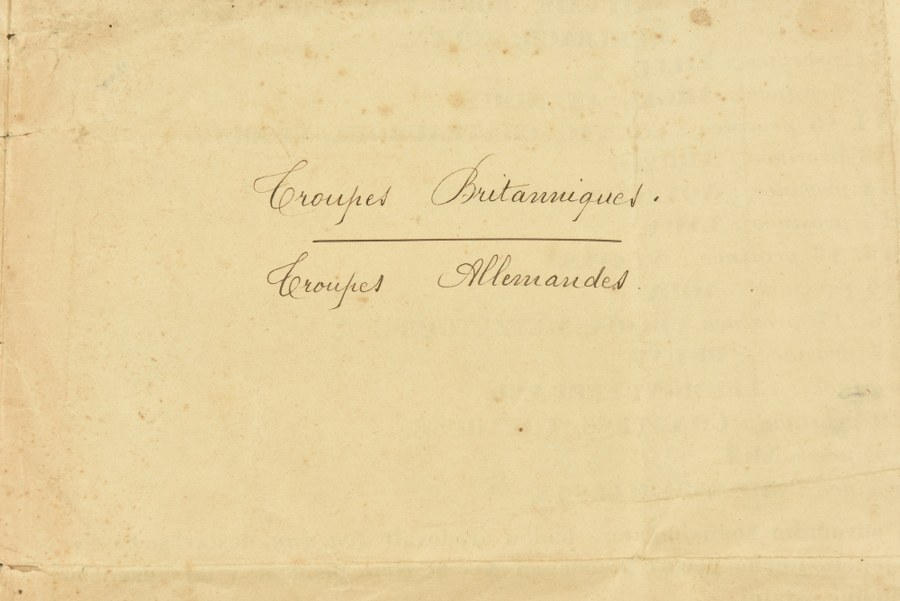 Troupes Britanniques.
Troupes Allemandes.